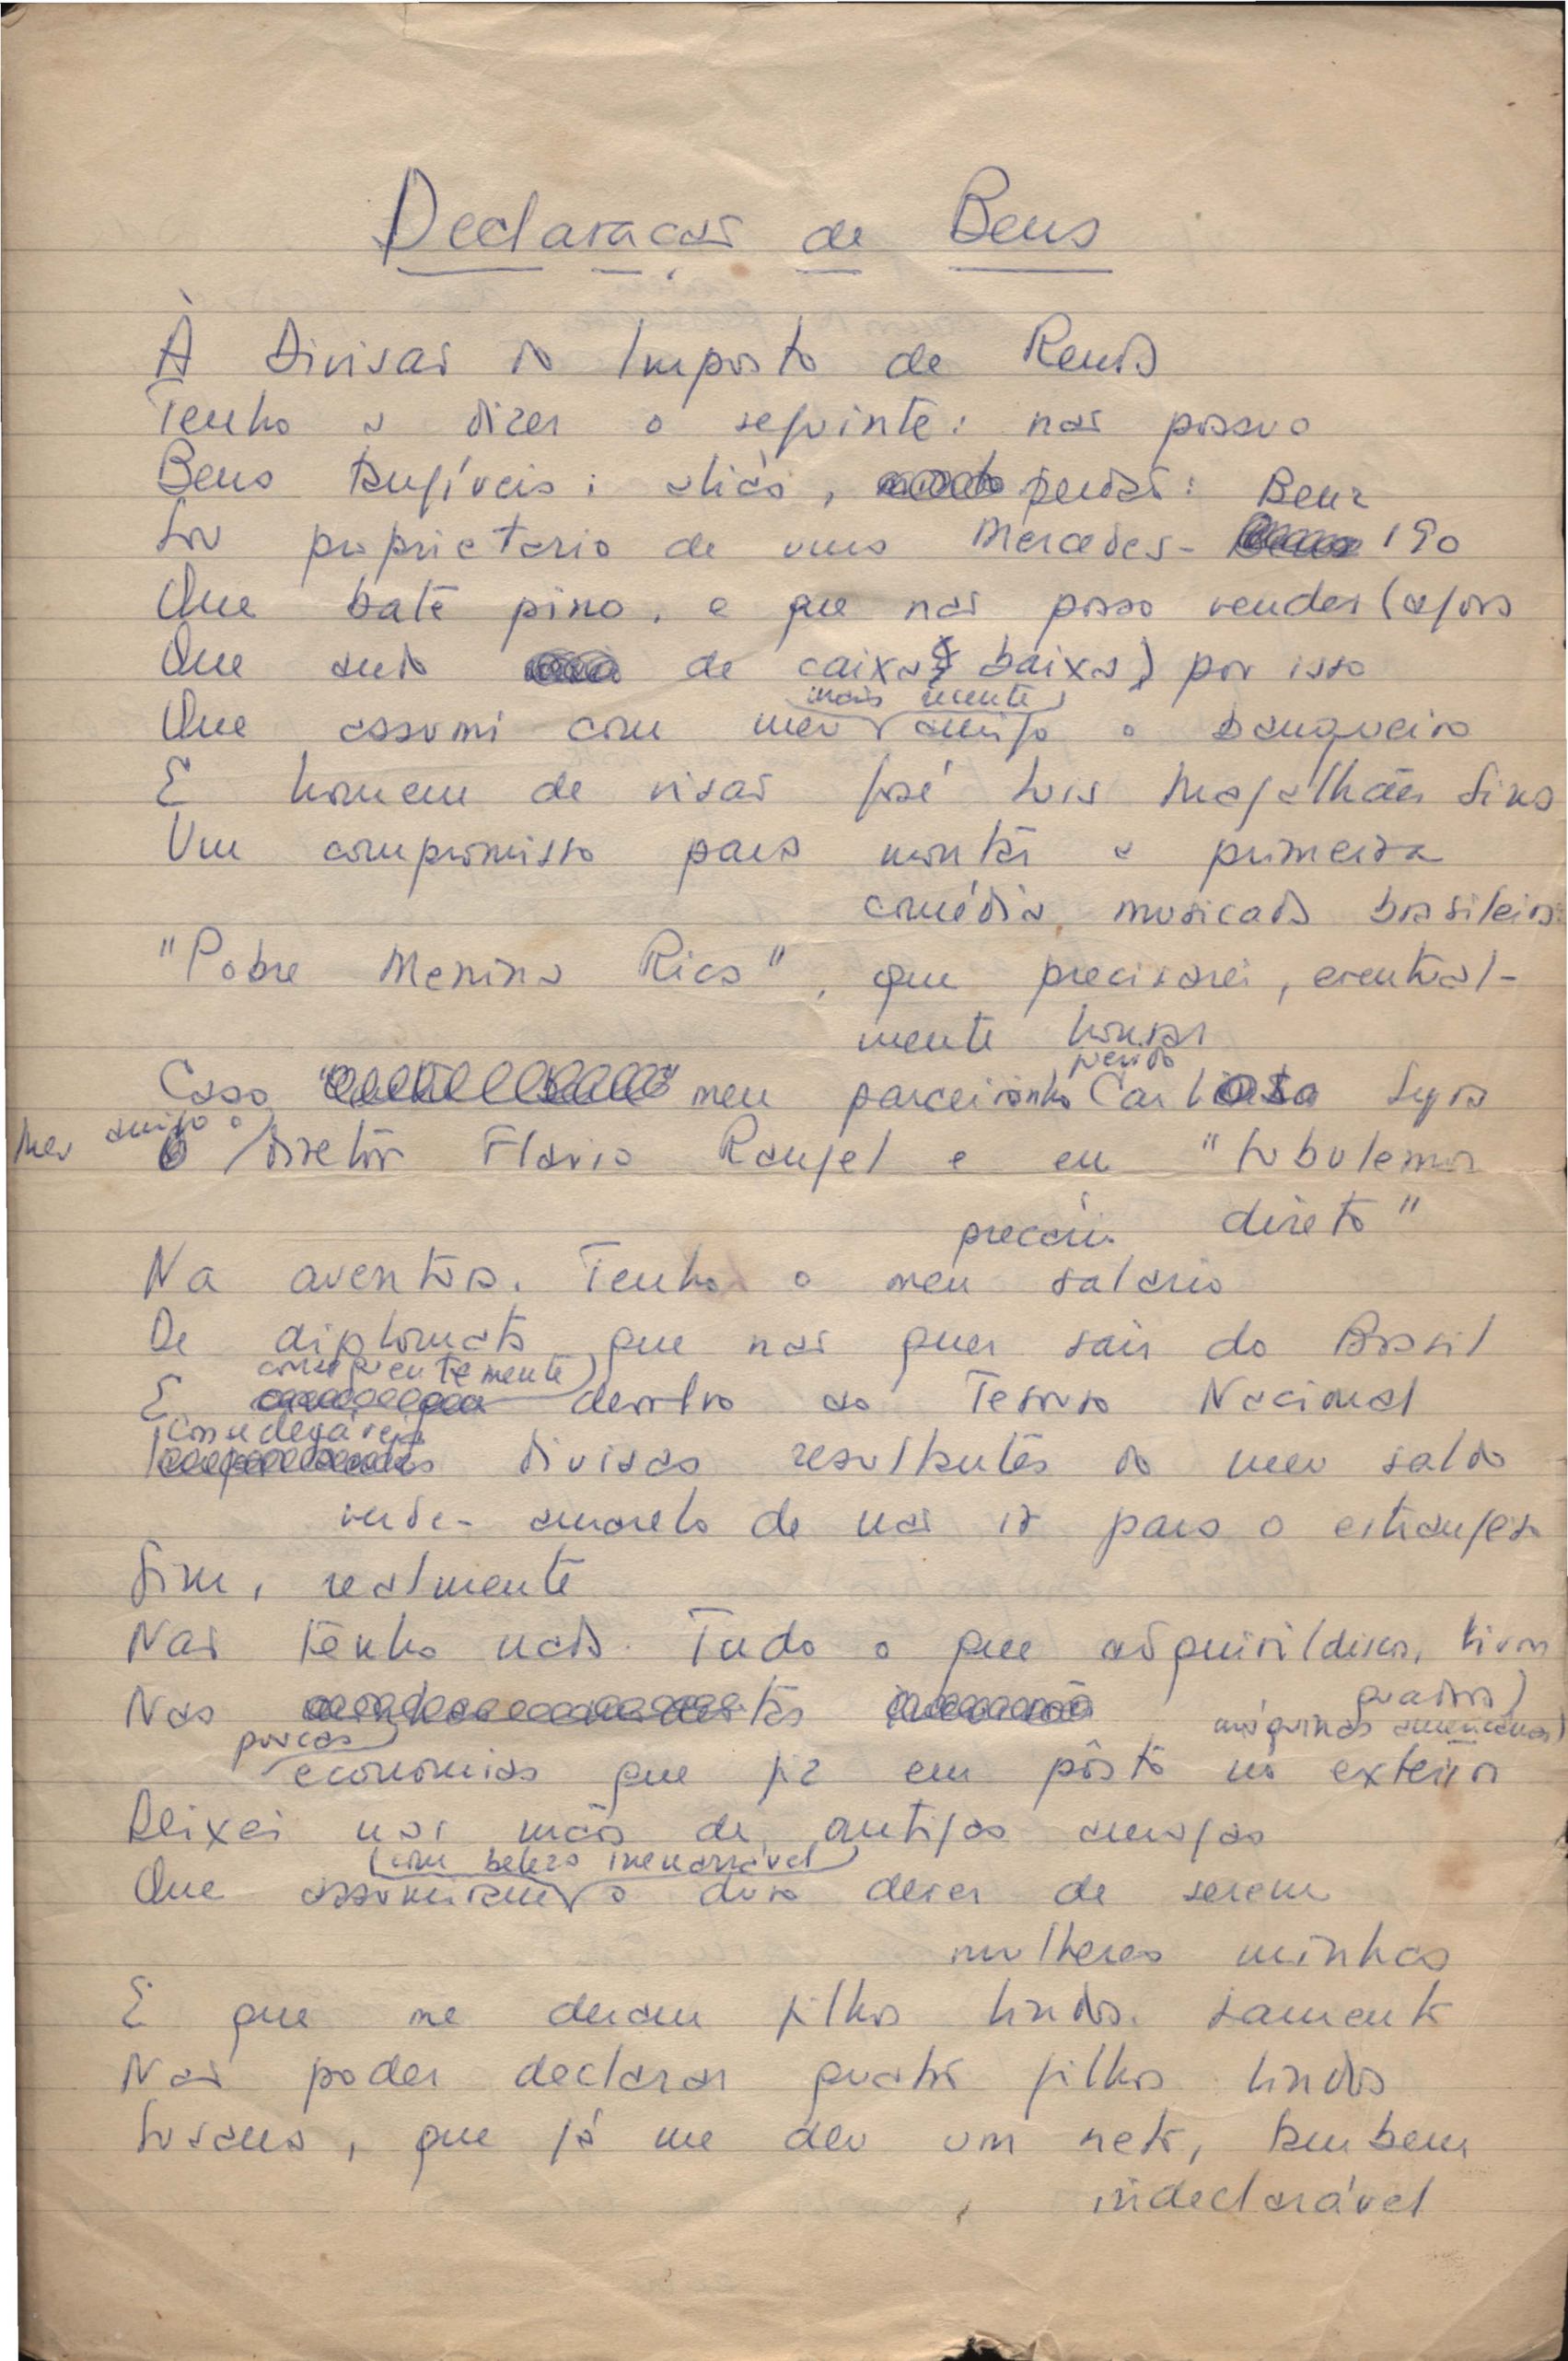 Declaração de Bens
À Divisão do Imposto de Renda
Tenho a dizer o seguinte: não possuo
Bens tangíveis; aliás, perdão: Benz
Sou proprietario de uma Mercedes- 190
Que bate pino, e que não posso vender (agora
Que ando de caixa baixa) por isso
mais recente
Que assumi com meu amigo o banqueiro
E homem de visão José Luis Magalhães Lins
Um compromisso para montar a primeira
comédia musicada brasileira:
"Pobre Menina Rica", que precisarei, eventual-
mente honrar
Caso meu parceirinho querido Carlos Lyra
Meu amigo o diretor Flavio Rangel e eu "tubulemos
direto"
precário
Na aventura. Tenho o meu salario
De diplomata que não quer sair do Brasil
consequentemente
E dentro do Tesouro Nacional
divisas resultantes do meu saldo
verde-amarelo de não ir para o estrangeiro
Sim, realmente
Não tenho nada. Tudo o que adquiri (discos, livros
quadros)
máquinas americanas)
Nas
parcas
economias que fiz em pôsto no exterior
Deixei nas mãos de antigas amigas
(com beleza inenarrável)
Que assumiram o duro dever de serem
mulheres minhas
E que me deram filhos lindos. Lamento
Não poder declarar quatro filhos lindos
Susana, que já me deu um neto, tambem
indeclarável